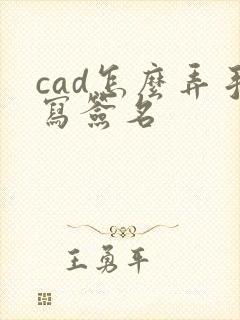 cad怎麼弄手
寫簽名
王勇平